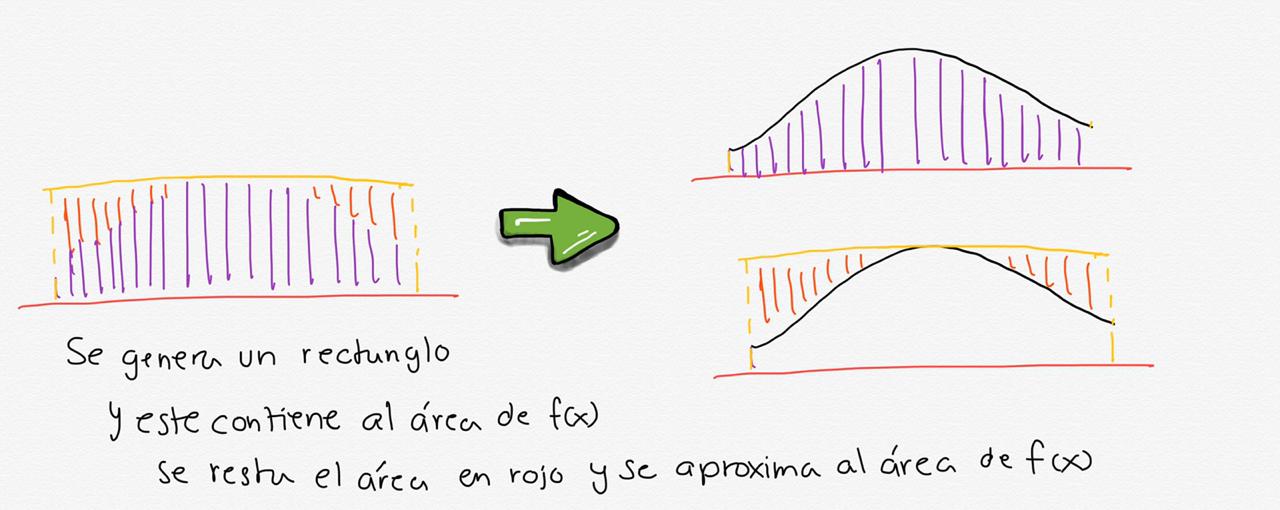 Se genera un rectunglo
y este contiene al área de f(x)
se resta el área en rojo y se aproxima al área de f(x)